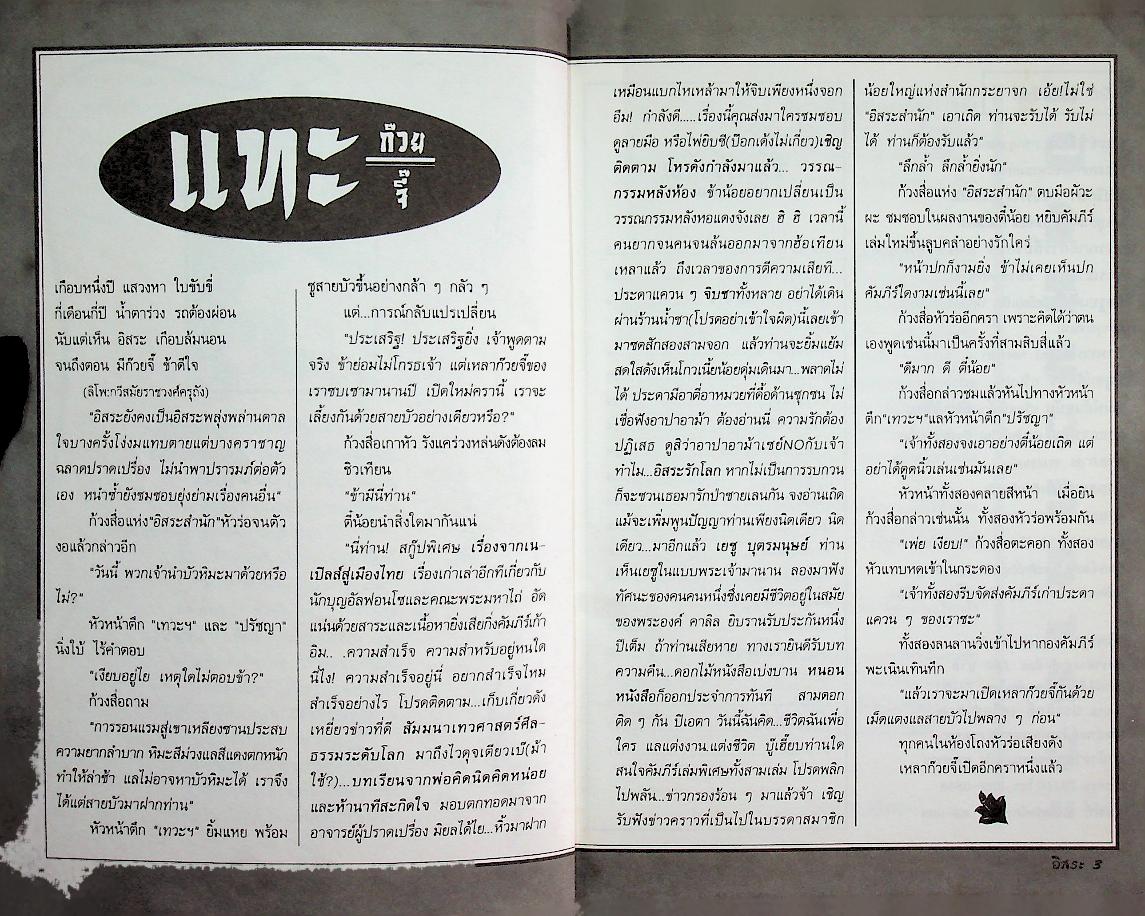 แทะ
ก๊วย
จี๊
เกือบหนึ่งปี แสวงหา ใบขับขี่
กี่เดือนกี่ปี น้ำตาร่วง รถต้องผ่อน
นับแต่เห็น อิสระ เกือบล้มนอน
จนถึงตอน มีก๊วยจี๊ ช้าดีใจ
(ลิโพ:กวีสมัยราชวงศ์ครุถัง)
"อิสระยังคงเป็นอิสระพลุ่งพล่านดาล
ใจบางครั้งโง่งมแทบตายแต่บางคราชาญ
ฉลาดปราดเปรื่อง ไม่นำพาปรารมภ์ต่อตัว
เอง หนำซ้ำยังชมชอบยุ่งย่ามเรื่องคนอื่น"
ก้วงสื่อแห่ง"อิสระสำนัก"หัวร่อจนตัว
งอแล้วกล่าวอีก
"วันนี้ พวกเจ้านำบัวหิมะมาด้วยหรือ
ไม่?"
หัวหน้าตึก "เทวะฯ" และ "ปรัชญา"
นิ่งใบ้ ไร้คำตอบ
"เงียบอยู่ไย เหตุใดไม่ตอบข้า?"
ก้วงสื่อถาม
"การรอนแรมสู่เขาเหลียงซานประสบ
ความยากลำบาก หิมะสีม่วงแลสีแดงตกหนัก
ทำให้ล่าช้า แลไม่อาจหาบัวหิมะได้ เราจึง
ได้แต่สายบัวมาฝากท่าน"
หัวหน้าตึก "เทวะฯ" ยิ้มแหย พร้อม
ชูสายบัวขึ้นอย่างกล้า ๆ กลัว ๆ
แต่...การณ์กลับแปรเปลี่ยน
"ประเสริฐ! ประเสริฐยิ่ง เจ้าพูดตาม
จริง ข้าย่อมไม่โกรธเจ้า แต่เหลาก๊วยจี๊ของ
เราซบเซามานานปี เปิดใหม่ครานี้ เราจะ
เลี้ยงกันด้วยสายบัวอย่างเดียวหรือ?"
ก้วงสื่อเกาหัว รังแคร่วงหล่นดังต้องลม
ชิวเทียน
"ข้ามีนี่ท่าน"
ตี๋น้อยนำสิ่งใดมากันแน่
"นี่ท่าน! สกู๊ปพิเศษ เรื่องจากเน-
เปิลส์สู่เมืองไทย เรื่องเก่าเล่าอีกทีเกี่ยวกับ
นักบุญอัลฟอนโซและคณะพระมหาไถ่ อัด
แน่นด้วยสาระและเนื้อหายิ่งเสียกิ่งคัมภีร์เก้า
อิม.. .ความสำเร็จ ความสำหรับอยู่หนใด
นี่ไง! ความสำเร็จอยู่นี่ อยากสำเร็จไหม
สำเร็จอย่างไร โปรดติดตาม...เก็บเกี่ยวดัง
เหยี่ยวข่าวที่ดี สัมมนาเทวศาสตร์ศีล-
ธรรมระดับโลก มาถึงไวดุจเดียวเบ๊(ม้า
ใช้?)...บทเรียนจากพ่อคิดนิดคิดหน่อย
และห้านาทีสะกิดใจ มอบตกทอดมาจาก
อาจารย์ผู้ปราดเปรื่อง มิยลได้ไย...หิ้วมาฝาก
เหมือนแบกไหเหล้ามาให้จิบเพียงหนึ่งจอก
อืม! กำลังดี.....เรื่องนี้คุณส่งมาใครชมชอบ
ดูลายมือ หรือไพ่ยิบซี(ป๊อกเด้งไม่เกี่ยว)เชิญ
ติดตาม โหรดังกำลังมาแล้ว... วรรณ-
กรรมหลังห้อง ข้าน้อยอยากเปลี่ยนเป็น
วรรณกรรมหลังหอแดงจังเลย ฮิ ฮิ เวลานี้
คนยากจนคนจนล้นออกมาจากฮ้อเทียน
เหลาแล้ว ถึงเวลาของการตีความเสียที...
ประดาแควน ๆ จิบชาทั้งหลาย อย่าได้เดิน
ผ่านร้านน้ำชา(โปรดอย่าเข้าใจผิด)นี้เลยเข้า
มาซดสักสองสามจอก แล้วท่านจะยิ้มแย้ม
สดใสดังเห็นโกวเนี้ยน้อยดุ่มเดินมา...พลาดไม่
ได้ ประดามีอาตี๋อาหมวยที่ดื้อด้านซุกซน ไม่
เชื่อฟังอาปาอาม้า ต้องอ่านนี่ ความรักต้อง
ปฏิเสธ ดูสิว่าอาปาอาม้าเซย์NOกับเจ้า
ทำไม...อิสระรักโลก หากไม่เป็นการรบกวน
ก็จะชวนเธอมารักป่าชายเลนกัน จงอ่านเถิด
แม้จะเพิ่มพูนปัญญาท่านเพียงนิดเดียว นิด
เดียว...มาอีกแล้ว เยซู บุตรมนุษย์ ท่าน
เห็นเยซูในแบบพระเจ้ามานาน ลองมาฟัง
ทัศนะของคนคนหนึ่งซึ่งเคยมีชีวิตอยู่ในสมัย
ของพระองค์ คาลิล ยิบรานรับประกันหนึ่ง
ปีเต็ม ถ้าท่านเสียหาย ทางเรายินดีรับบท
ความคืน...ดอกไม้หนังสือเบ่งบาน หนอน
หนังสือก็ออกประจำการทันที สามดอก
ติด ๆ กัน ปิเอตา วันนี้ฉันคิด...ชีวิตฉันเพื่อ
ใคร แลแต่งงาน.แต่งชีวิต บู๊เฮี้ยบท่านใด
สนใจคัมภีร์เล่มพิเศษทั้งสามเล่ม โปรดพลิก
ไปพลัน...ข่าวกรองร้อน ๆ มาแล้วจ้า เชิญ
รับฟังข่าวคราวที่เป็นไปในบรรดาสมาชิก
น้อยใหญ่แห่งสำนักกระยาจก เอ้ย!ไม่ใช่
"อิสระสำนัก" เอาเถิด ท่านจะรับได้ รับไม่
ได้ ท่านก็ต้องรับแล้ว"
"ลึกล้ำ ลึกล้ำยิ่งนัก"
ก้วงสื่อแห่ง "อิสระสำนัก" ตบมือผัวะ
ผะ ชมชอบในผลงานของตี๋น้อย หยิบคัมภีร์
เล่มใหม่ขึ้นลูบคลำอย่างรักใคร่
"หน้าปกก็งามยิ่ง ข้าไม่เคยเห็นปก
คัมภีร์ใดงามเช่นนี้เลย"
ก้วงสื่อหัวร่ออีกครา เพราะคิดได้ว่าตน
เองพูดเช่นนี้มาเป็นครั้งที่สามสิบสี่แล้ว
"ดีมาก ดี ตี๋น้อย"
ก้วงสื่อกล่าวชมแล้วหันไปทางหัวหน้า
ตึก"เทวะฯ"แลหัวหน้าตึก"ปรัชญา"
"เจ้าทั้งสองจงเอาอย่างตี๋น้อยเถิด แต่
อย่าได้ดูดนิ้วเล่นเช่นมันเลย"
หัวหน้าทั้งสองคลายสีหน้า เมื่อยิน
ก้วงสื่อกล่าวเช่นนั้น ทั้งสองหัวร่อพร้อมกัน
"เพ่ย เงียบ!" ก้วงสื่อตะคอก ทั้งสอง
หัวแทบหดเข้าในกระดอง
"เจ้าทั้งสองรับจัดส่งคัมภีร์เก่าประดา
แควน ๆ ของเราซะ"
ทั้งสองลนลานวิ่งเข้าไปหากองคัมภีร์
พะเนินเทินทึก
"แล้วเราจะมาเปิดเหลาก๊วยจี๊กันด้วย
เม็ดแตงแลสายบัวไปพลาง ๆ ก่อน"
ทุกคนในห้องโถงหัวร่อเสียงดัง
เหลาก๊วยจี๊เปิดอีกคราหนึ่งแล้ว
อิสระ 3